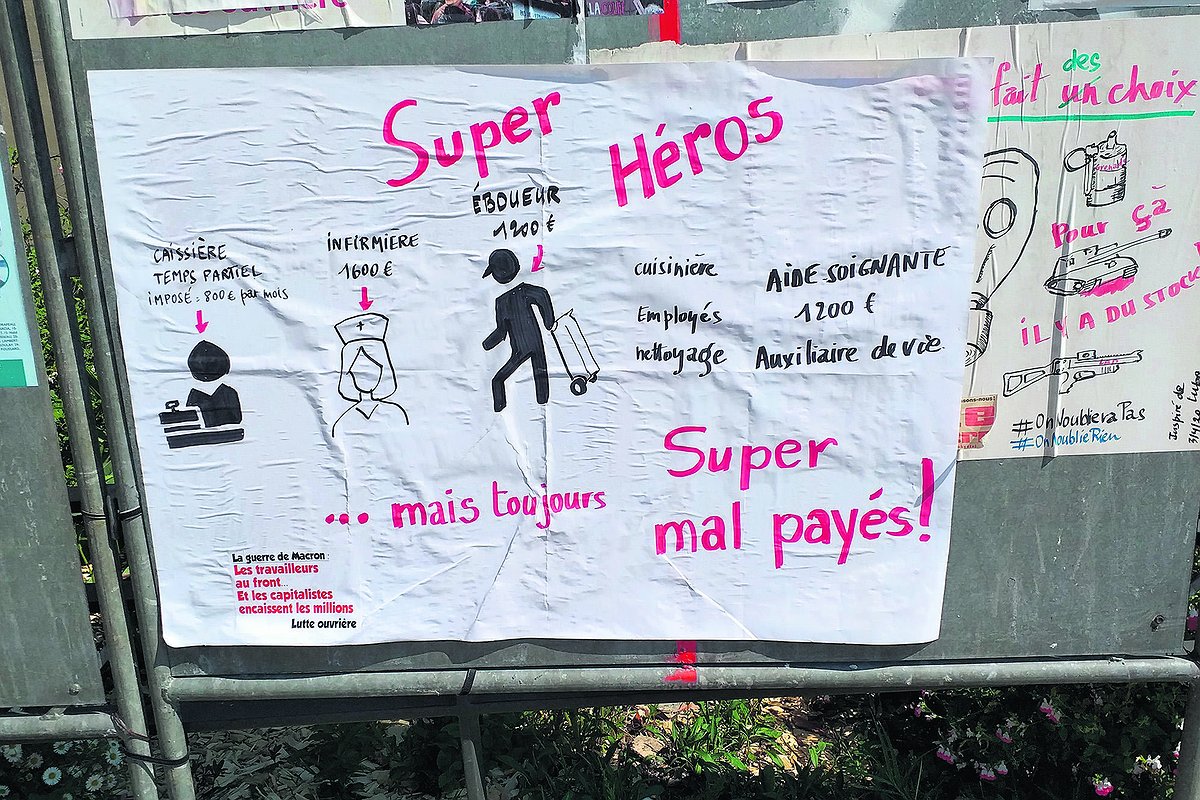 Super
Héros
ÉBOUEUR
1200 €
CAISSIÈRE
TEMPS PARTIEL
IMPOSÉ : 800 € par mois
INFIRMIÈRE
1600 €
cuisinière
Employés
nettoyage
AIDE SOIGNANTE
1200 €
Auxiliaire de vie
... mais toujours
Super
mal payés!
La guerre de Macron :
Les travailleurs
au front...
Et les capitalistes
encaissent les millions
Lutte ouvrière
des
fait un choix
Pour ça
IL Y A DU STOCK
#OnNoublieraPas
#OnNoublieRien
Inspiré de